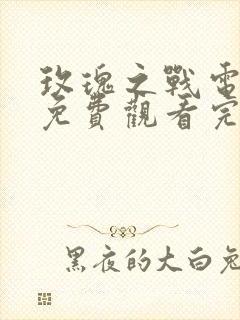 玫瑰之戰電
免費觀看完
黑夜的大白兔